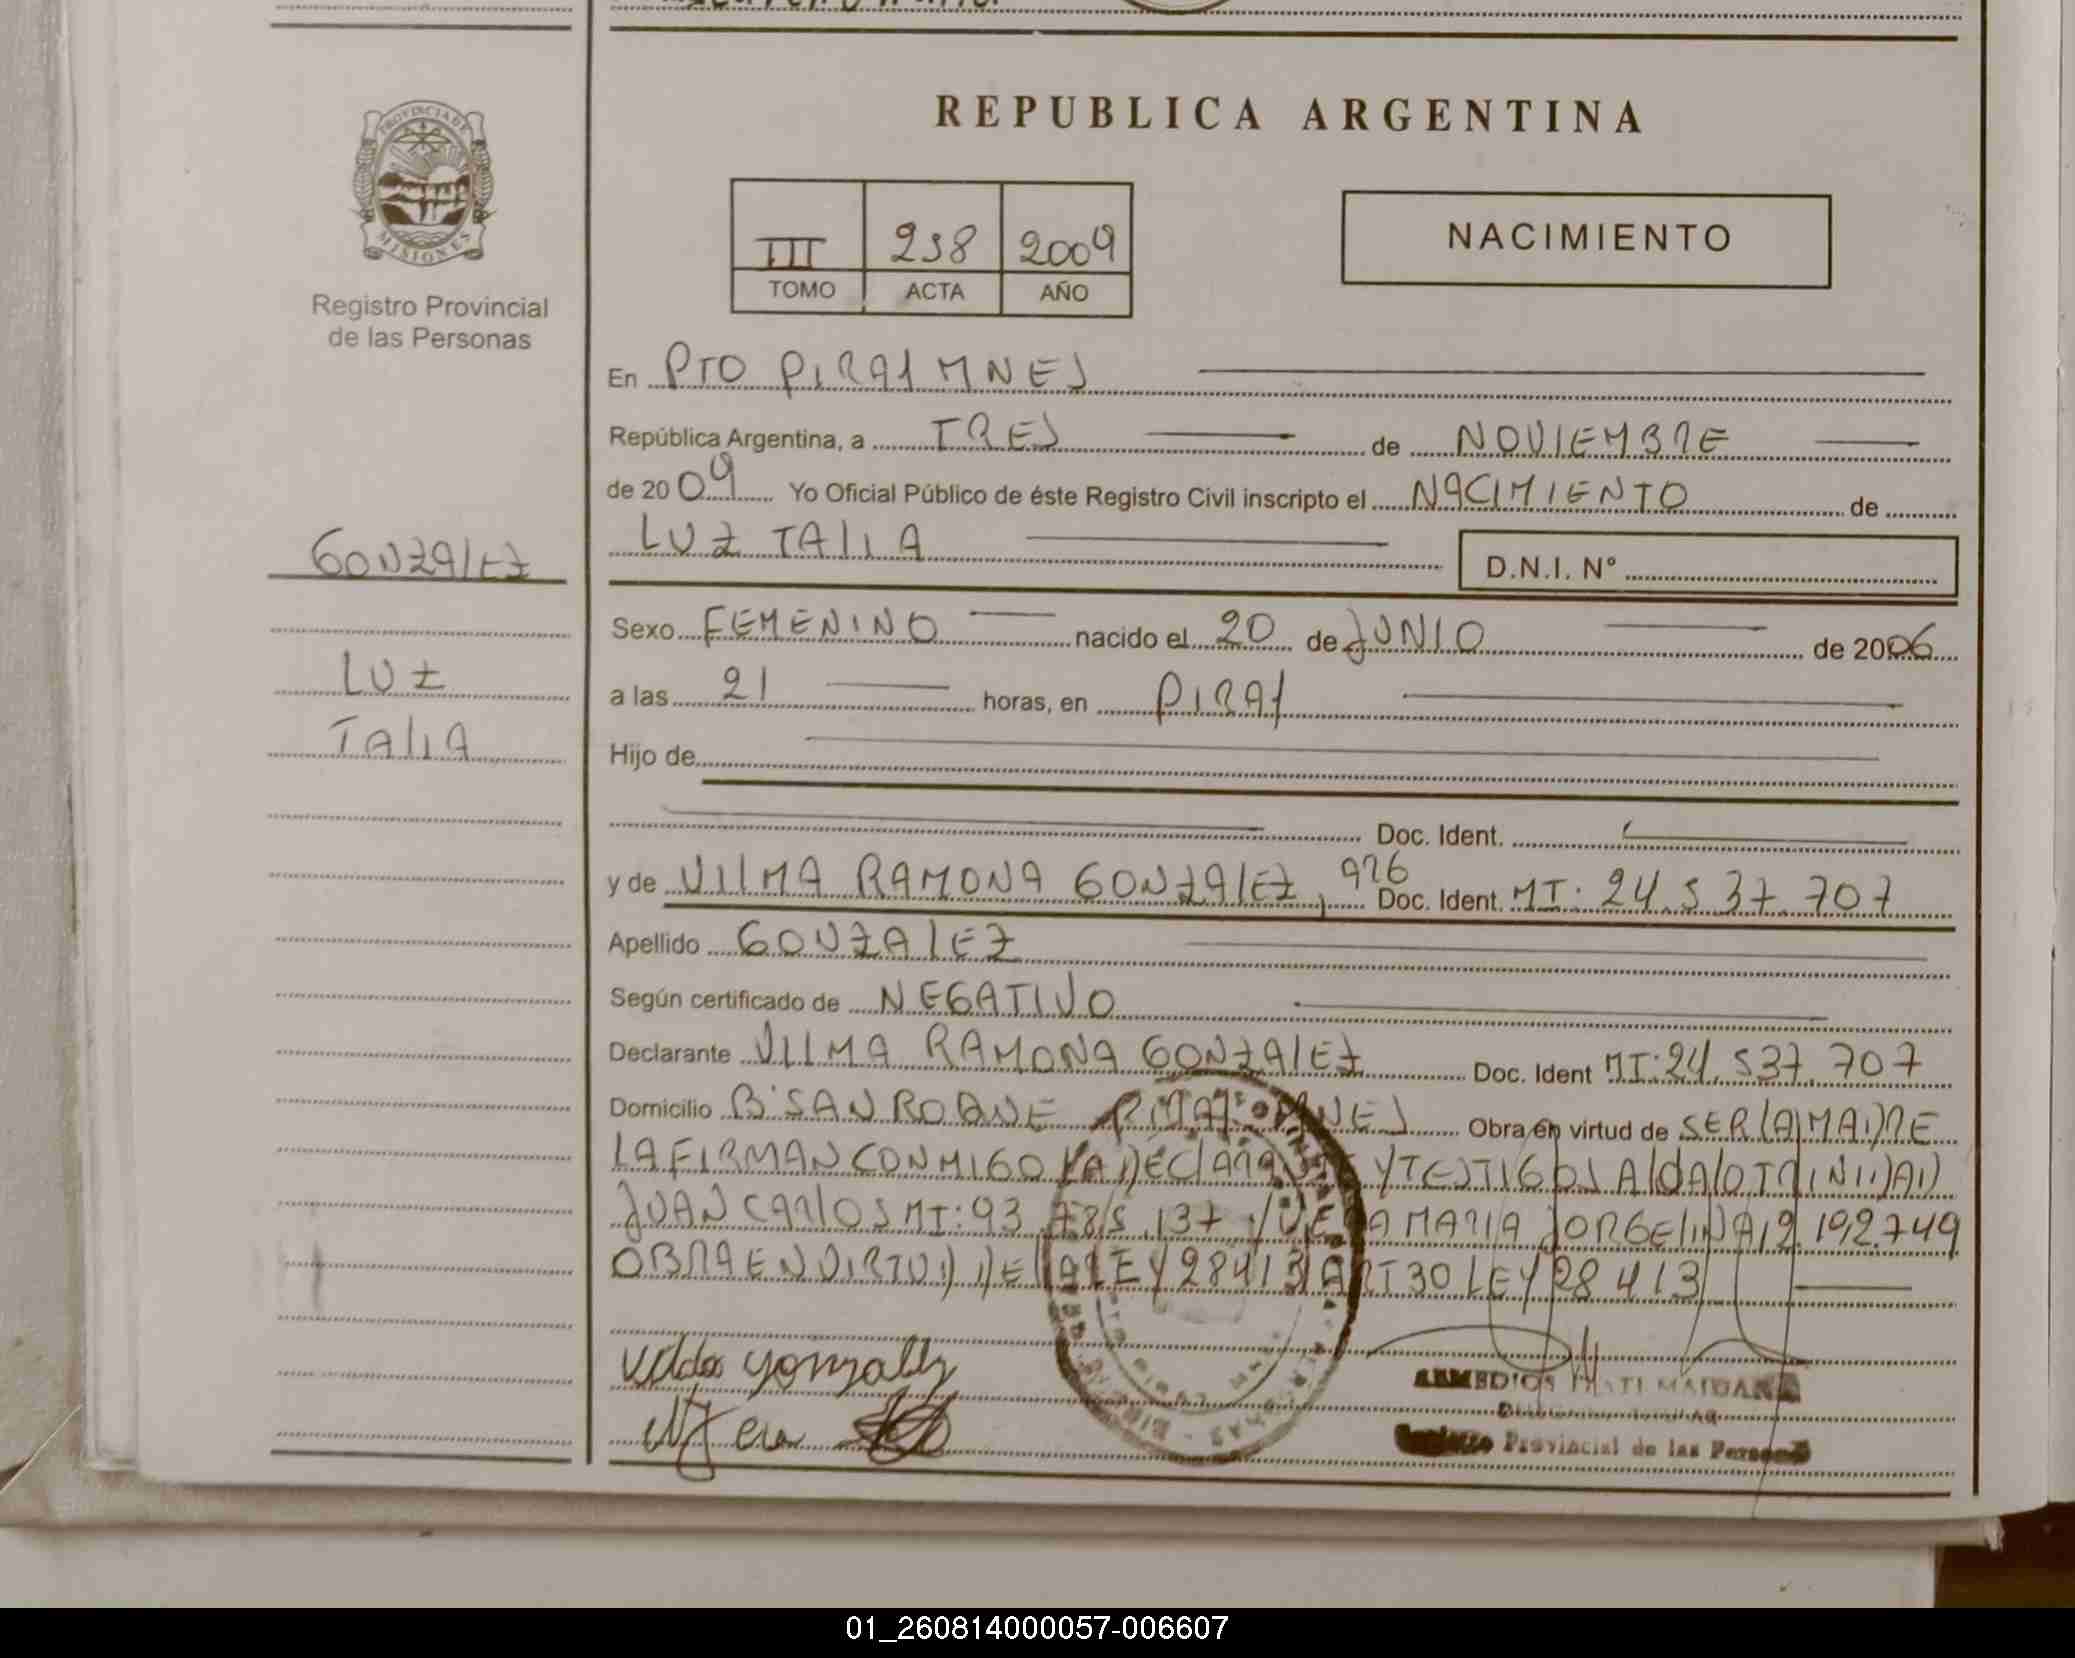 REPUBLICA ARGENTINA
PROVINCIA DE
MISIONES
Registro Provincial
de las Personas
III 258 2009
TOMO ACTA AÑO
NACIMIENTO
En PTO PIRAI MNES
República Argentina, a TRES de NOVIEMBRE
de 2009 Yo Oficial Público de éste Registro Civil inscripto el NACIMIENTO de
LUZ TALIA
D.N.I. Nº
GONZALEZ
LUZ
TALIA
Sexo FEMENINO nacido el 20 de JUNIO de 2006
a las 21 horas, en PIRAI
Hijo de
Doc. Ident.
y de VILMA RAMONA GONZALEZ, ARG Doc. Ident. MI: 24.537.707
Apellido GONZALEZ
Según certificado de NEGATIVO
Declarante VILMA RAMONA GONZALEZ Doc. Ident MI: 24.537.707
Domicilio Bº SAN ROQUE PIRAI MNES Obra en virtud de SER LA MADRE
LA FIRMAN CONMIGO LA DECLARANTE Y TESTIGOS ALDALO TRINIDAD
JUAN CARLOS MI: 93.785.137 / VERA MARIA JORGELINA 12.192.749
OBRA EN VIRTUD DE LA LEY 28413 ART 30 LEY 28413
Gonzalez
Provincial de las Personas
01_260814000057-006607